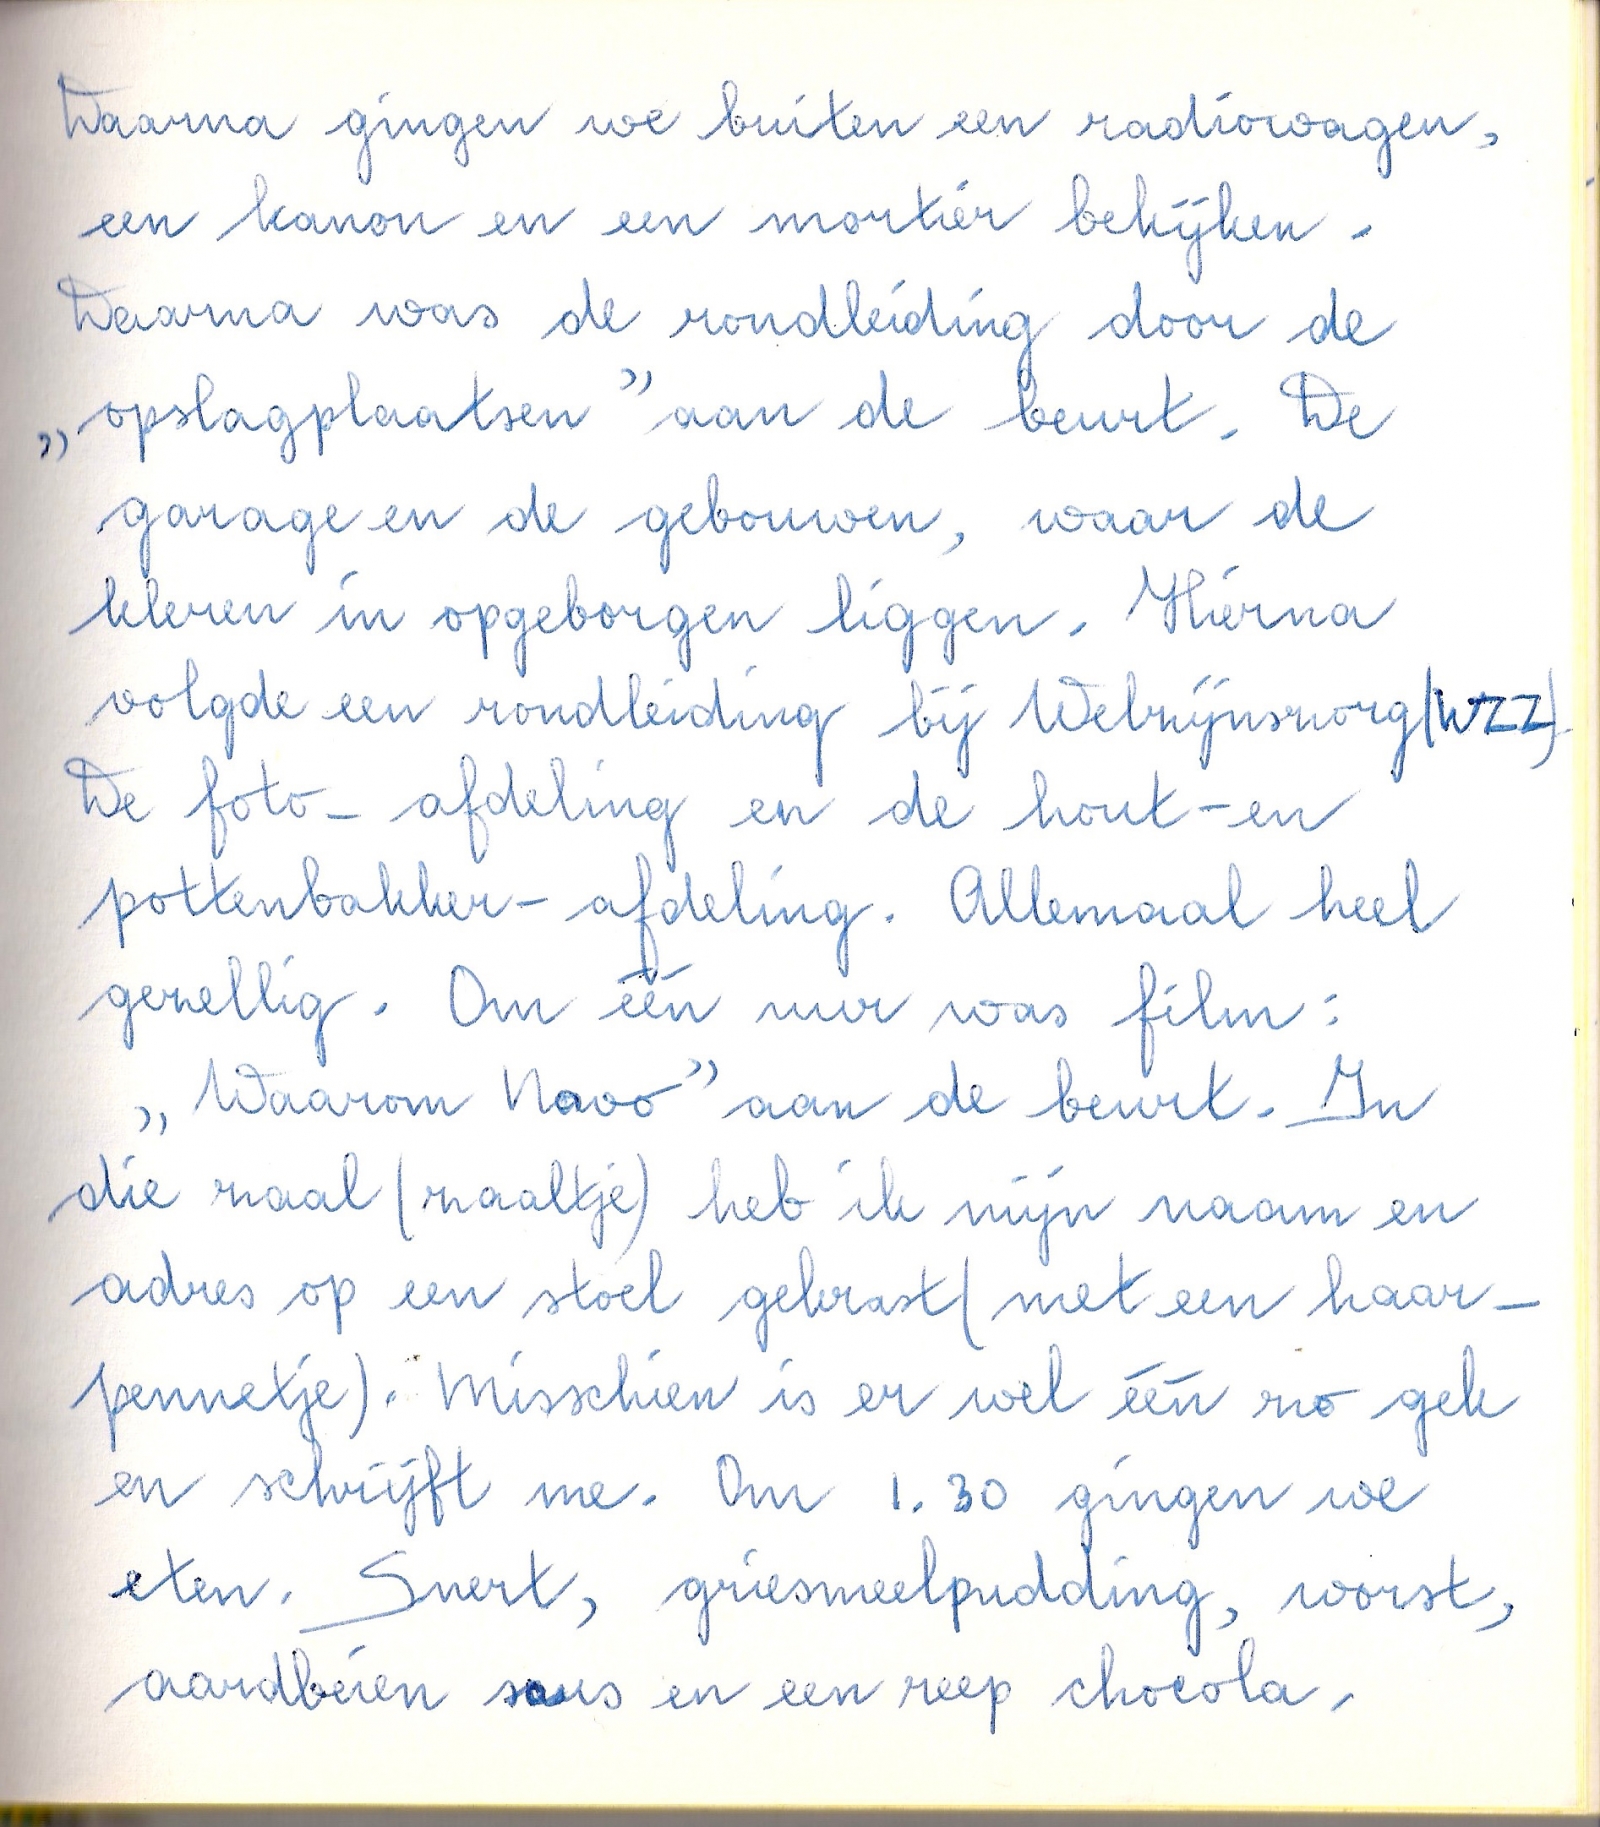 Daarna gingen we buiten een radiowagen,
een kanon en een mortier bekijken.
Daarna was de rondleiding door de
„opslagplaatsen” aan de beurt. De
garage en de gebouwen, waar de
kleren in opgeborgen liggen. Hierna
volgde een rondleiding bij Welzijnszorg (WZZ)
De foto-afdeling en de hout-en
pottenbakker-afdeling. Allemaal heel
gezellig. Om één uur was film:
„Waarom Navo” aan de beurt. In
die zaal (zaaltje) heb ik mijn naam en
adres op een stoel gekrast (met een haar-
pennetje). Misschien is er wel één zo gek
en schrijft me. Om 1.30 gingen we
eten. Snert, griesmeelpudding, worst,
aardbeien saus en een reep chocola.